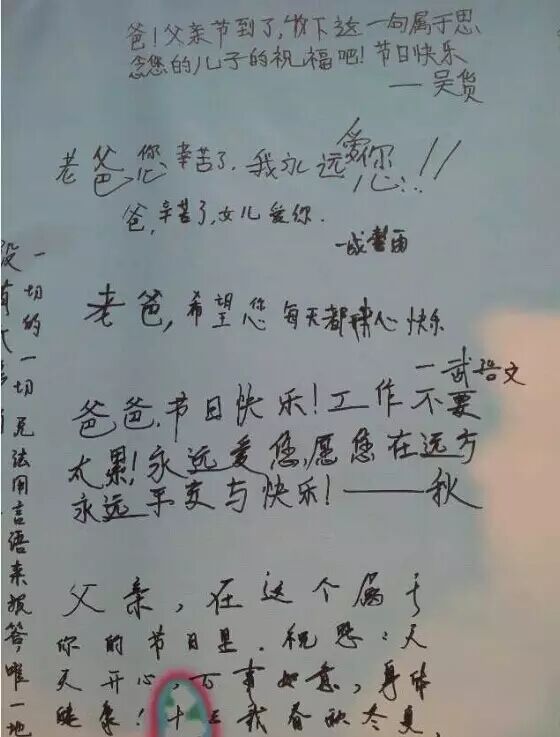 爸！父亲节到了，收下这一句属于思
念您的儿子的祝福吧！节日快乐
—吴货
老爸您辛苦了，我永远爱您!!
爸，辛苦了，女儿爱你.
老爸，希望您每天都开心快乐
—武语文
爸爸，节日快乐！工作不要
太累！永远爱您，愿您在远方
永远平安与快乐！——秋
父亲，在这个属于
你的节日里.祝愿:天
天开心，万事如意，身体
健康！十三载春秋冬夏，
一切的一切无法用言语来报答，唯一地
没有